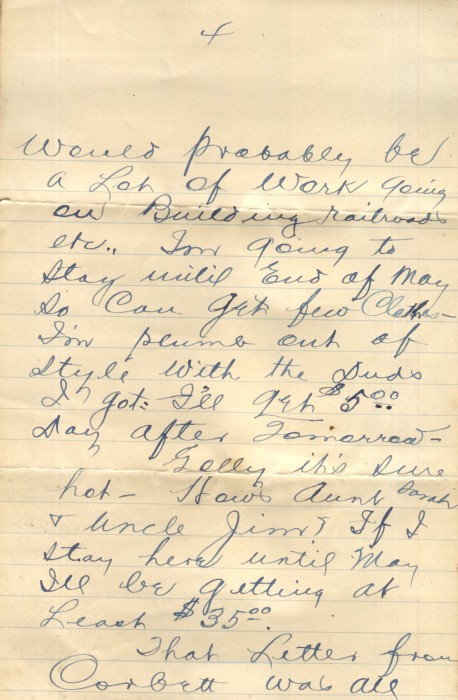 4
Would probably be
a Lot of Work going
on Building railroads
etc., I'm going to
Stay until End of May
So Can get few Clothes -
I'm plumb out of
Style with the Duds
I got. I'll get $5.00
Day after Tomorrow -
Golly it's sure
hot - Hows Aunt Sarah
& Uncle Jim? If I
Stay here until May
I'll be getting at
Least $35.00.
That Letter from
Corbett was all